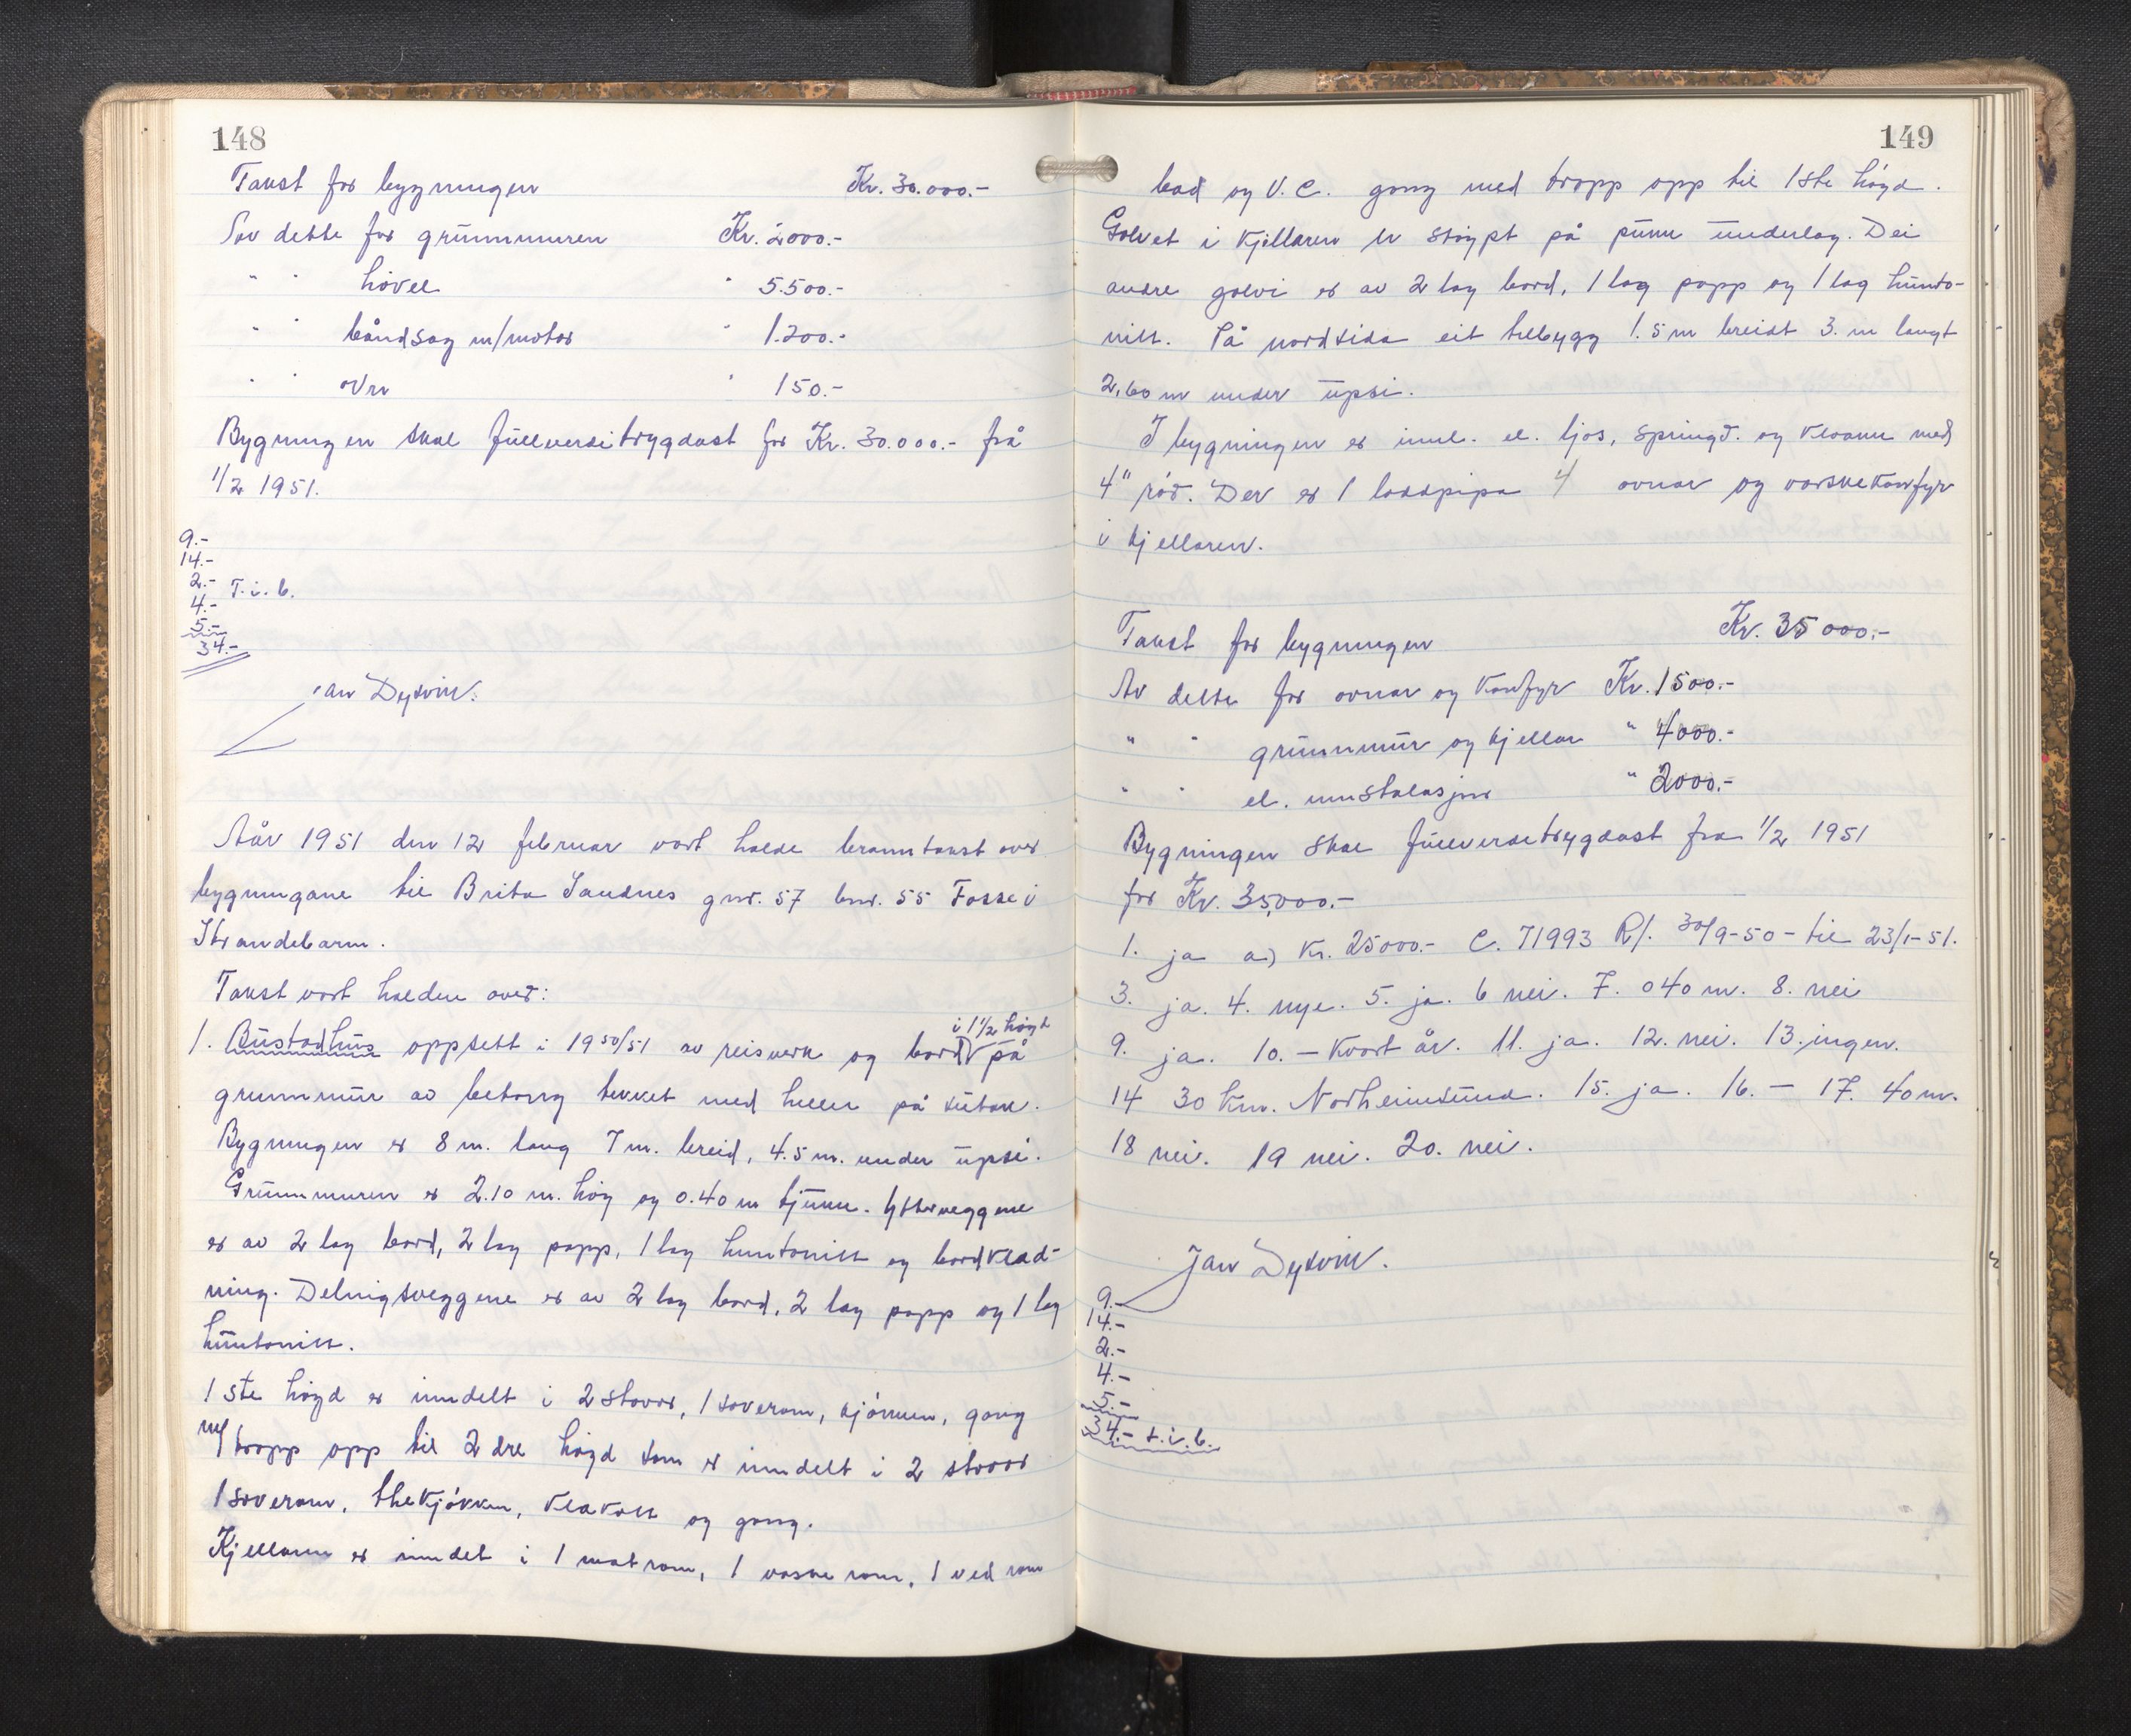 148
Takst for bygningen Kr. 30.000.-
Av dette for grunnmuren Kr. 2000.-
" " hövel " 5.500.-
" " båndsag m/motor " 1.200.-
" " ovn " 150.-
Bygningen skal fullverditrygdast for Kr. 30.000.- frå
1/2 1951.
9.-
14.-
2.- T.i.b.
4.-
5.-
34.-
Jan Dysvik.
År 1951 den 12 februar vart halde branntakst over
bygningane til Brita Sandnes gnr. 57 bnr. 55 Fosse i
Strandebarm.
Takst vart halden over:
i 1 1/2 högd
1. Bustadhus oppsett i 1950/51 av reisverk og bord på
grunnmur av betong tekket med heller på sutak.
Bygningen er 8 m. lang 7 m. breid, 4.5 m. under upsi.
Grunnmuren er 2.10 m. høg og 0.40 m tjukk. Ytterveggene
er av 2 lag bord, 2 lag papp, 1 lag huntonitt og bordklad-
ning. Delingsveggene er av 2 lag bord, 2 lag papp og 1 lag
huntonitt.
1ste høgd er inndelt i 2 stover, 1 soverom, kjøkken, gang
m/ tropp opp til 2dre høgd som er inndelt i 2 stover
1 soverom, thekjøkken, klakott og gang.
Kjellaren er inndelt i 1 matrom, 1 vaskerom, 1 ved rom
149
bad og V.C. gang med tropp opp til 1ste høgd.
Golvet i kjellaren er støypt på purr underlag. Dei
andre golvi er av 2 lag bord, 1 lag papp og 1 lag hunto-
nitt. På nordsida eit tilbygg 1.5 m breidt 3. m langt
2,60 m under upsi.
I bygningen er innl. el. ljos, springv. og kloakk med
4" rör. Der er 1 loddpipa 4 ovnar og vaskekomfyr
i kjellaren.
Takst for bygningen Kr. 35000.-
Av dette for ovnar og komfyr Kr. 1500.-
" " grunnmur og kjellar " 4000.-
" " el. innstalasjon " 2000.-
Bygningen skal fullverditrygdast fra 1/2 1951
for Kr. 35,000.-
1. ja a) Kr. 25000.- C. 71993 R/. 30/9-50 - til 23/1-51.
3. ja. 4. nye. 5. ja. 6 nei. 7. 040 m. 8. nei
9. ja. 10. - kvart år. 11. ja. 12. nei. 13. ingen.
14 30 km. Norheimsund. 15. ja. 16. - 17. 40 m.
18 nei. 19 nei. 20. nei.
Jan Dysvik.
9.-
14.-
2.-
4.-
5.-
34.- t.i.b.